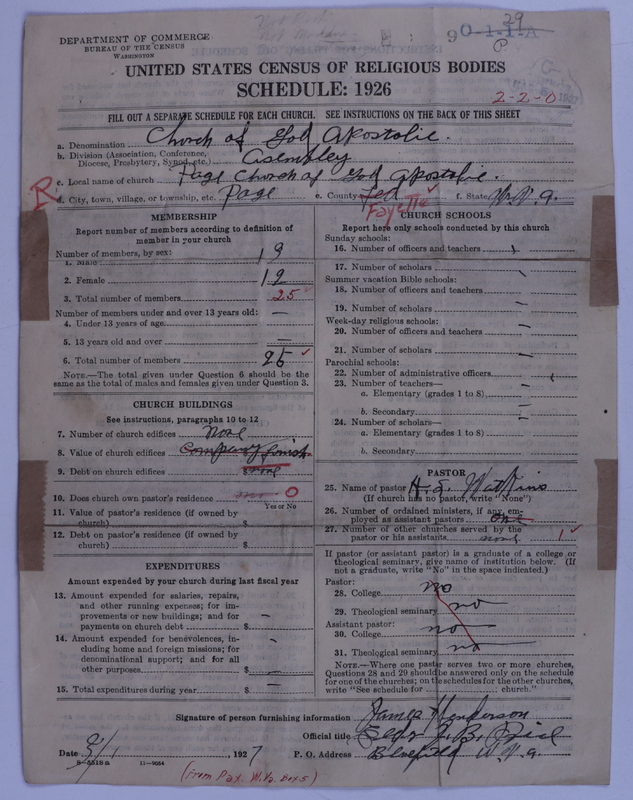 DEPARTMENT OF COMMERCE
BUREAU OF THE CENSUS
WASHINGTON
29
90-1-1-A
P
UNITED STATES CENSUS OF RELIGIOUS BODIES
SCHEDULE: 1926
2-2-0
FILL OUT A SEPARATE SCHEDULE FOR EACH CHURCH. SEE INSTRUCTIONS ON THE BACK OF THIS SHEET
a. Denomination Church of God Apostolic.
b. Division (Association, Conference, Diocese, Presbytery, Synod, etc.) Asembley
c. Local name of church Page Church of God Apostolic.
R
d. City, town, village, or township, etc. Page e. County Fed Fayette ✓ f. State W. V. a.
MEMBERSHIP
Report number of members according to definition of
member in your church
Number of members, by sex:
1. Male 19
2. Female 19
3. Total number of members 25
Number of members under and over 13 years old:
4. Under 13 years of age —
5. 13 years old and over —
6. Total number of members 25 ✓
NOTE.—The total given under Question 6 should be
same as the total of males and females given under Question 3.
CHURCH BUILDINGS
See instructions, paragraphs 10 to 12
7. Number of church edifices None
8. Value of church edifices Company
9. Debt on church edifices $ none
10. Does church own pastor's residence 0
Yes or No
11. Value of pastor's residence (if owned by
church) $
12. Debt on pastor's residence (if owned by
church) $
EXPENDITURES
Amount expended by your church during last fiscal year
13. Amount expended for salaries, repairs,
and other running expenses; for im-
provements or new buildings; and for
payments on church debt $ —
14. Amount expended for benevolences, in-
cluding home and foreign missions; for
denominational support; and for all
other purposes $ —
15. Total expenditures during year $
CHURCH SCHOOLS
Report here only schools conducted by this church
Sunday schools:
16. Number of officers and teachers
17. Number of scholars
Summer vacation Bible schools:
18. Number of officers and teachers
19. Number of scholars
Week-day religious schools:
20. Number of officers and teachers
21. Number of scholars
Parochial schools:
22. Number of administrative officers
23. Number of teachers—
a. Elementary (grades 1 to 8)
b. Secondary
24. Number of scholars—
a. Elementary (grades 1 to 8)
b. Secondary
PASTOR
25. Name of pastor Watkins
(If church has no pastor, write "None")
26. Number of ordained ministers, if any, em-
ployed as assistant pastors one
27. Number of other churches served by the
pastor or his assistants none 1 ✓
If pastor (or assistant pastor) is a graduate of a college or
theological seminary, give name of institution below. (If
not a graduate, write "No" in the space indicated.)
Pastor:
28. College no
29. Theological seminary no
Assistant pastor:
30. College no
31. Theological seminary no
NOTE.—Where one pastor serves two or more churches,
Questions 28 and 29 should be answered only on the schedule
for one of the churches; on the schedules for the other churches,
write "See schedule for church."
Signature of person furnishing information James Henderson
Official title
Date 3/1, 1927 P. O. Address Bluefield W. V. a.
8-5518a 11-9054
(From Pax. W. Va. Box 5)